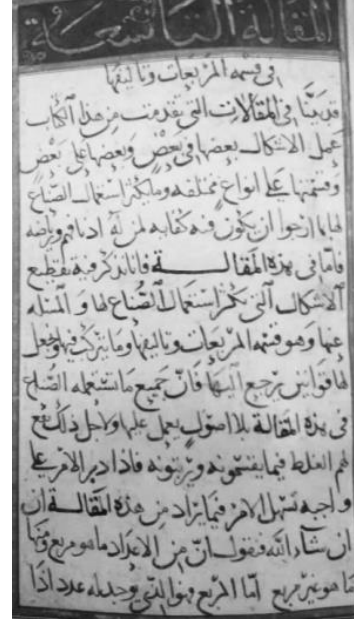 المقالة التاسعة
في قسمة المربعات وتاليفها
قد بينا في المقالات التي تقدمت من هذا الكتاب
عمل الاشكال بعضها في بعض وبعضها على بعض
وقسمتها على انواع مختلفه وما يكثر استعمال الصناع
لها بما ارجوا ان يكون فيه كفايه لمن له ادنى فهم ورياضه
فاما في هذه المقالة فانا نذكر فيه تقطيع
الاشكال التي يكثر استعمال الصناع لها و المسئله
عنها وهو قسمه المربعات وتاليفها وما يتركب فيها ونجعل
لها قوانين يرجع اليها فان جميع ما تستعمله الصناع
في هذه المقالة بلا اصول يعمل عليها ولاجل ذلك يقع
لهم الغلط فيما يقسمونه ويرتبونه فاذا دبر الامر على
واجبه تسهل الامر فيما يراد من هذه المقالة ان
ان شاء الله فنقول ان من الاعداد ما هو مربع ومنها
ما هو غير مربع اما المربع فهو الذي يوجد له عدد اذا